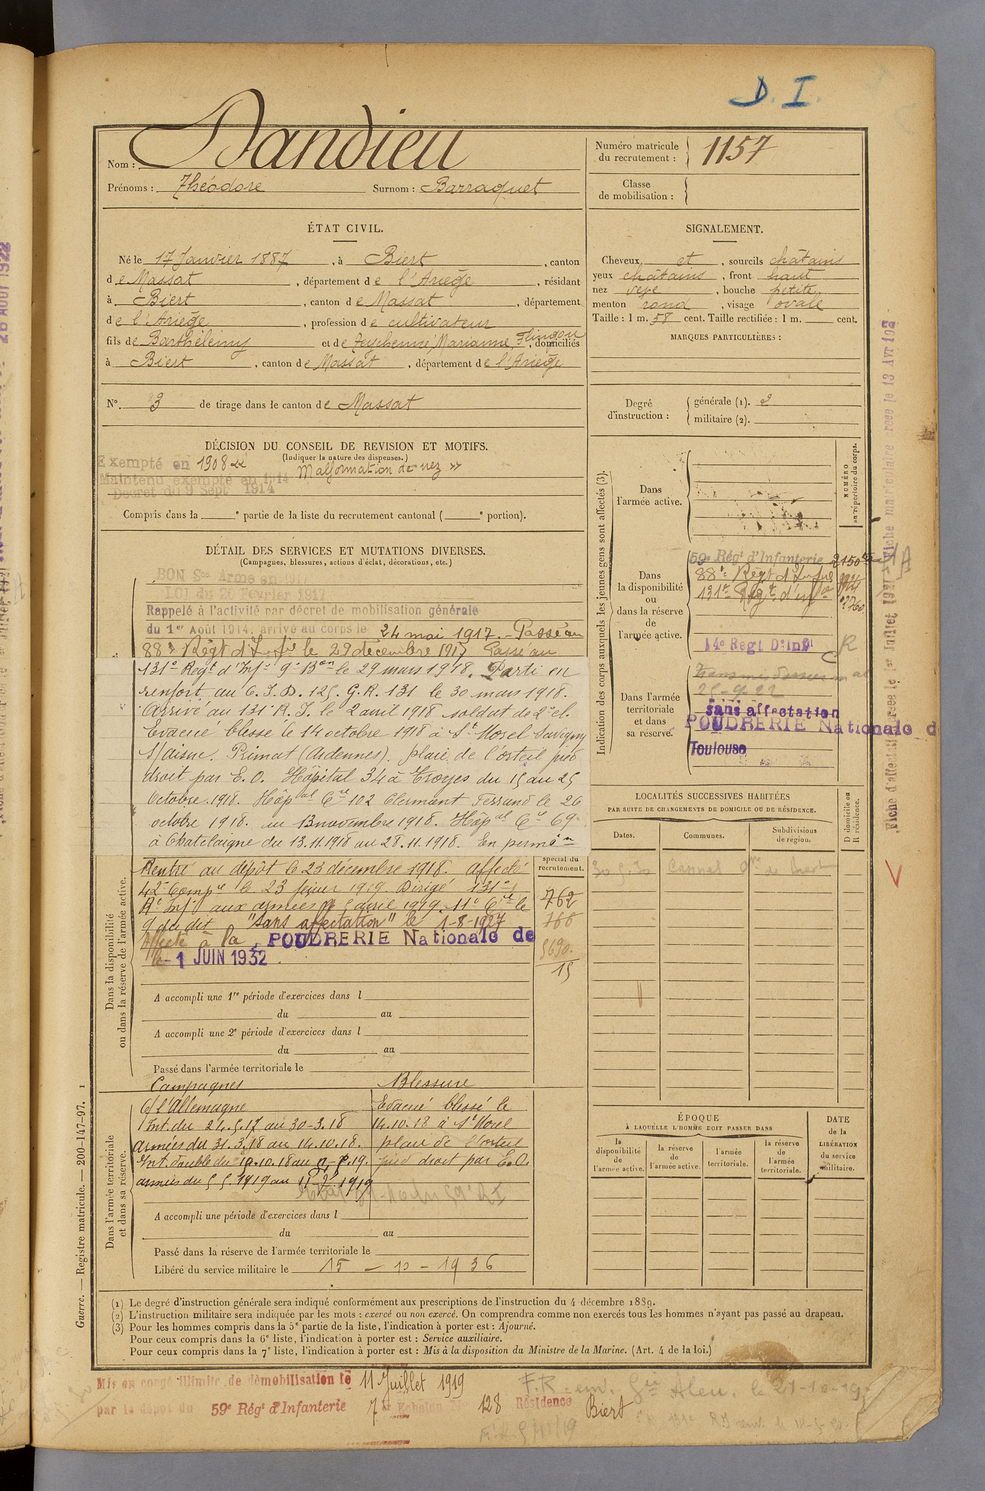 D. I.
Nom : Dandieu
Prénoms : Théodore Surnom : Barraquet
Numéro matricule du recrutement : 1157
Classe de mobilisation :
ÉTAT CIVIL.
Né le 17 Janvier 1887, à Biert, canton
de Massat, département de l'Ariège, résidant
à Biert, canton de Massat, département
de l'Ariège, profession de cultivateur
fils de Barthélémy et de Marianne, domiciliés
à Biert, canton de Massat, département de l'Ariège
N° 3 de tirage dans le canton de Massat
SIGNALEMENT.
Cheveux et, sourcils châtains
yeux châtains, front haut
nez, bouche petite,
menton rond, visage ovale
Taille : 1 m. 58 cent. Taille rectifiée : 1 m. cent.
MARQUES PARTICULIÈRES :
Degré d'instruction : générale (1). 2
militaire (2).
DÉCISION DU CONSEIL DE REVISION ET MOTIFS.
(Indiquer la nature des dispenses.)
Exempté en 1908 « Malformation de nez »
Maintenu exempté en 1914
Décret du 9 Sept 1914
Compris dans la e partie de la liste du recrutement cantonal ( e portion).
DÉTAIL DES SERVICES ET MUTATIONS DIVERSES.
(Campagnes, blessures, actions d'éclat, décorations, etc.)
BON Sce Armé en 1917
LOI du 20 Février 1917
Rappelé à l'activité par décret de mobilisation générale
du 1er Août 1914, arrivé au corps le 24 mai 1917. Passé au
88e Régt d'Infie le 29 décembre 1917 Passé au
131e Régt d'Infie 9e Bon le 29 mars 1918. Parti en
renfort au C.I.D. 125. G.R. 131 le 30 mars 1918.
Arrivé au 131 R.I. le 2 avril 1918 soldat de 2e cl.
Evacué blessé le 14 octobre 1918 à St Morel Savigny
s/aisne. Primat (Ardennes). plaie de l'orteil pied
droit par E.O. Hôpital 34 à Troyes du 15 au 25
Octobre 1918. Hôpal Cre 102 Clermont Ferrand le 26
octobre 1918. au 13 novembre 1918. Hôpal Cre 69.
à Chatelaigne du 13.11.1918 au 28.11.1918. En permon
Rentré au dépôt le 23 décembre 1918. affecté
42e Compie le 23 février 1919 Dirigé 131e
Rt Infie aux armées le 5 avril 1919. 11e Cie le
9 du dit "sans affectation" le 1-8-1927
Affecté à la POUDRERIE Nationale de
le -1 JUIN 1932
spécial du recrutement.
762
788
5690
15
Dans la disponibilité ou dans la réserve de l'armée active.
A accompli une 1re période d'exercices dans l
du au
A accompli une 2e période d'exercices dans l
du au
Passé dans l'armée territoriale le
Campagnes
C/ l'Allemagne
Int. du 24.5.17 au 30-3.18
Armées du 31.3.18 au 14.10.18.
armées du 5 5 1919 au
Blessure
Evacué blessé le
14.10.18 à St Morel
plaie de l'orteil
pied droit par E.O.
Dans l'armée territoriale et dans sa réserve.
A accompli une période d'exercices dans l
du au
Passé dans la réserve de l'armée territoriale le
Libéré du service militaire le 15 - 10 - 1936
Indication des corps auxquels les jeunes gens sont affectés (3).
NUMÉRO au répertoire du corps.
Dans l'armée active.
Dans la disponibilité ou dans la réserve de l'armée active.
59e Régt d'Infanterie
88e Régt d'Infie
131e Régt d'Infie
14e Régt D'Infie
Dans l'armée territoriale et dans sa réserve.
sans affectation
POUDRERIE Nationale d
Toulouse
LOCALITÉS SUCCESSIVES HABITÉES
PAR SUITE DE CHANGEMENTS DE DOMICILE OU DE RÉSIDENCE.
Dates. Communes. Subdivisions de région. D domicile ou R résidence.
ÉPOQUE
À LAQUELLE L'HOMME DOIT PASSER DANS
la disponibilité de l'armée active. la réserve de l'armée active. l'armée territoriale. la réserve de l'armée territoriale.
DATE de la LIBÉRATION du service militaire.
(1) Le degré d'instruction générale sera indiqué conformément aux prescriptions de l'instruction du 4 décembre 1889.
(2) L'instruction militaire sera indiquée par les mots : exercé ou non exercé. On comprendra comme non exercés tous les hommes n'ayant pas passé au drapeau.
(3) Pour les hommes compris dans la 5e partie de la liste, l'indication à porter est : Ajourné.
Pour ceux compris dans la 6e liste, l'indication à porter est : Service auxiliaire.
Pour ceux compris dans la 7e liste, l'indication à porter est : Mis à la disposition du Ministre de la Marine. (Art. 4 de la loi.)
Guerre. — Registre matricule. — 200-147-97.
Mis en congé illimité de démobilisation le 11 Juillet 1919
par le dépôt du 59e Régt d'Infanterie 7e Echelon 128 Résidence Biert